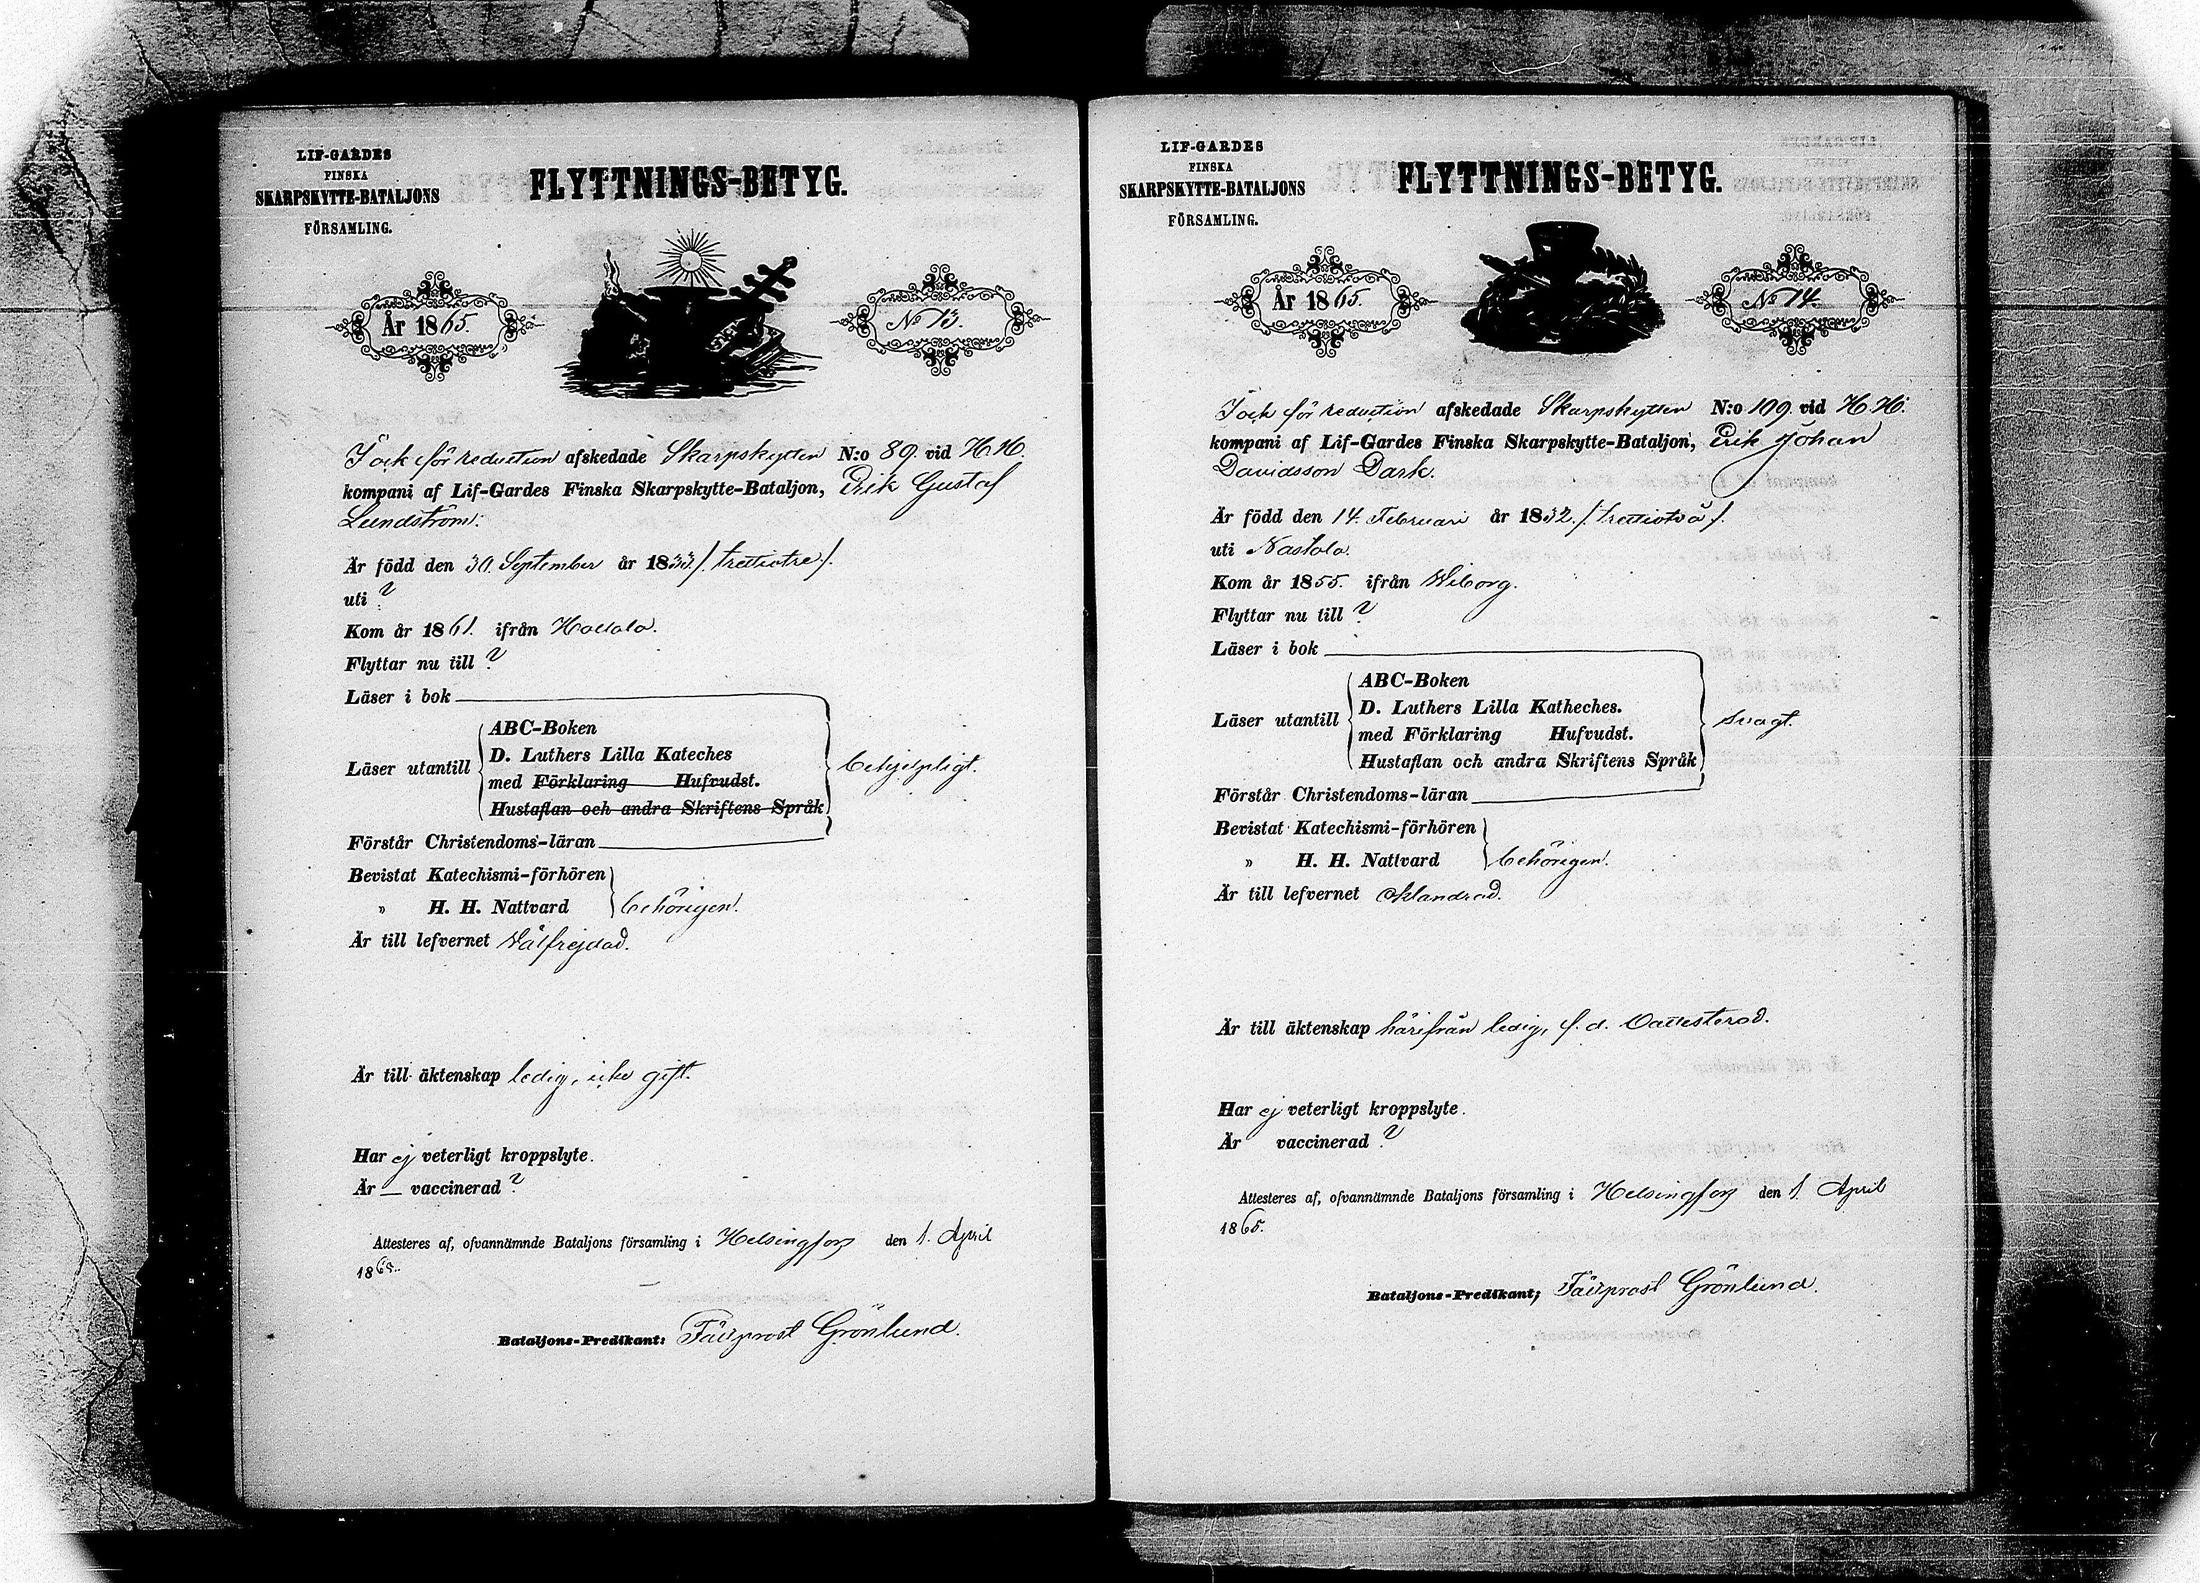 LIF-GARDES
FINSKA
SKARPSKYTTE-BATALJONS
FÖRSAMLING.
FLYTTNINGS-BETYG.
År 1865.
No 13.
för reduction afskedade Skarpskytten N:o 89. vid H.H.
kompani af Lif-Gardes Finska Skarpskytte-Bataljon, Erik Gustaf
Lundström.
Är född den 30. September år 1833 /: trettiotre /.
uti ?
Kom år 1861. ifrån Hollola.
Flyttar nu till ?
Läser i bok
ABC-Boken
D. Luthers Lilla Kateches
Läser utantill
med Förklaring Hufvudst.
Hustaflan och andra Skriftens Språk
behjelpligt.
Förstår Christendoms-läran
Bevistat Katechismi-förhören
» H. H. Nattvard behörigen.
Är till lefvernet Välfrejdad.
Är till äktenskap ledig, icke gift.
Har ej veterligt kroppslyte.
Är — vaccinerad ?
Attesteres af, ofvannämnde Bataljons församling i Helsingfors den 1. April
1865.
Bataljons-Predikant: Fältprost Grönlund.
LIF-GARDES
FINSKA
SKARPSKYTTE-BATALJONS
FÖRSAMLING.
FLYTTNINGS-BETYG.
År 1865.
No 14.
för reduction afskedade Skarpskytten N:o 109. vid H.H.
kompani af Lif-Gardes Finska Skarpskytte-Bataljon, Erik Johan
Davidsson Dark.
Är född den 14. Februari år 1832. /: trettiotvå /.
uti Nastola.
Kom år 1855. ifrån Wiborg.
Flyttar nu till ?
Läser i bok
ABC-Boken
D. Luthers Lilla Katheches.
Läser utantill
med Förklaring Hufvudst.
Hustaflan och andra Skriftens Språk
svagt.
Förstår Christendoms-läran
Bevistat Katechismi-förhören
» H. H. Nattvard behörigen.
Är till lefvernet oklandrad.
Är till äktenskap härifrån ledig, f. d.
Har ej veterligt kroppslyte.
Är vaccinerad ?
Attesteres af, ofvannämnde Bataljons församling i Helsingfors den 1. April
1865.
Bataljons-Predikant; Fältprost Grönlund.